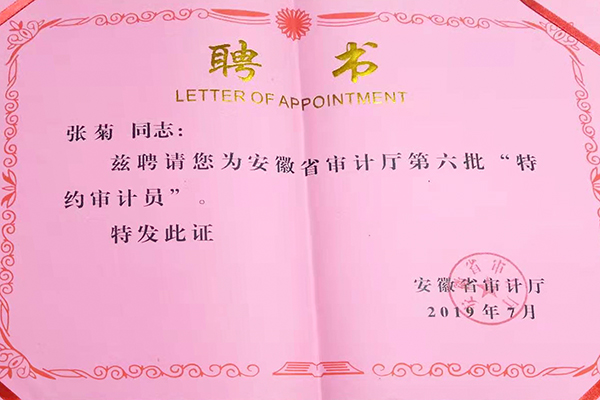 聘 书
LETTER OF APPOINTMENT
张菊 同志：
兹聘请您为安徽省审计厅第六批“特
约审计员”。
特发此证
安徽省审计厅
2019年7月